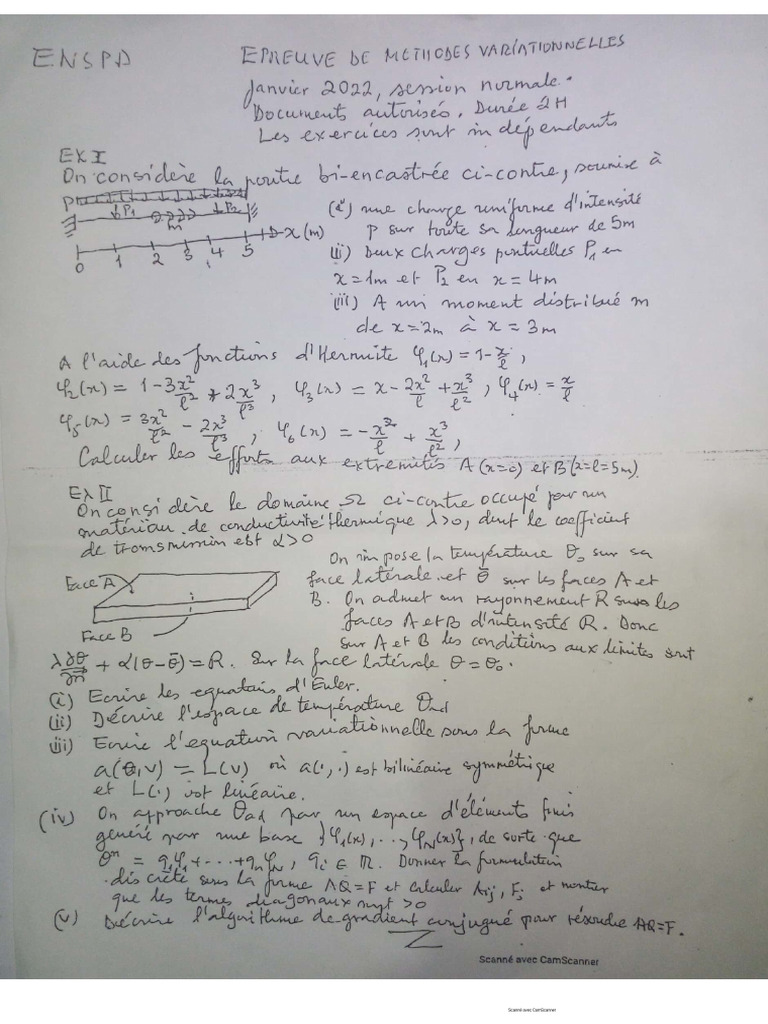 ENSPD EPREUVE DE METHODES VARIATIONNELLES
Janvier 2022, session normale.
Documents autorisés. Durée 2H
Les exercices sont indépendants
EX I
On considère la poutre bi-encastrée ci-contre, soumise à
p
P1 P2
m
x (m)
0 1 2 3 4 5
(i) une charge uniforme d'intensité
p sur toute sa longueur de 5m
(ii) Deux charges ponctuelles P1 en
x=1m et P2 en x = 4m
(iii) A un moment distribué m
de x=2m à x = 3m
A l'aide des fonctions d'Hermite φ1(x) = 1-x/l,
φ2(x) = 1-3x²/l² + 2x³/l³, φ3(x) = x-2x²/l + x³/l², φ4(x) = x/l
φ5(x) = 3x²/l² - 2x³/l³, φ6(x) = -x²/l + x³/l²,
Calculer les efforts aux extremités A (x=0) et B (x=l=5m).
EX II
On considère le domaine Ω ci-contre occupé par un
matériau de conductivité thermique λ>0, dont le coefficient
de transmission est α>0
Face A
Face B
On impose la température θ0 sur sa
face latérale et θ̄ sur les faces A et
B. On admet un rayonnement R sur les
faces A et B d'intensité R. Donc
sur A et B les conditions aux limites sont
λ∂θ/∂n + α(θ-θ̄) = R. Sur la face latérale θ = θ0.
(i) Ecrire les equations d'Euler.
(ii) Décrire l'espace de température θad
iii) Ecrire l'equation variationnelle sous la forme
a(θ,v) = L(v) où a(·,·) est bilinéaire symmétrique
et L(·) est linéaire.
(iv) On approche θad par un espace d'éléments finis
généré par une base {φ1(x), ..., φN(x)}, de sorte que
θn = q1φ1 + ... + qNφN, qi ∈ R. Donner la formulation
discrète sous la forme AQ=F et calculer Aij, Fj et montrer
que les termes diagonaux sont >0
(v) Décrire l'algorithme de gradient conjugué pour résoudre AQ=F.
Scanné avec CamScanner
Scanné avec CamScanner